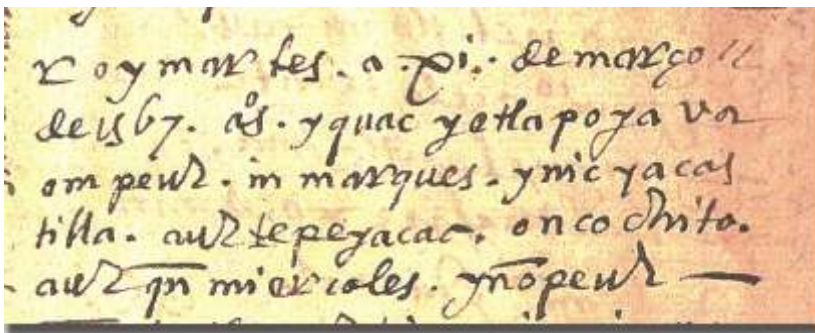 v oy martes. a. xi. de março
de 1567. aºs. yquac yetlapoyava
ompeuh. in marques. ynic yacas
tilla. auh tepeyacac. oncochito.
auh qn miercoles. ynōpeuh —